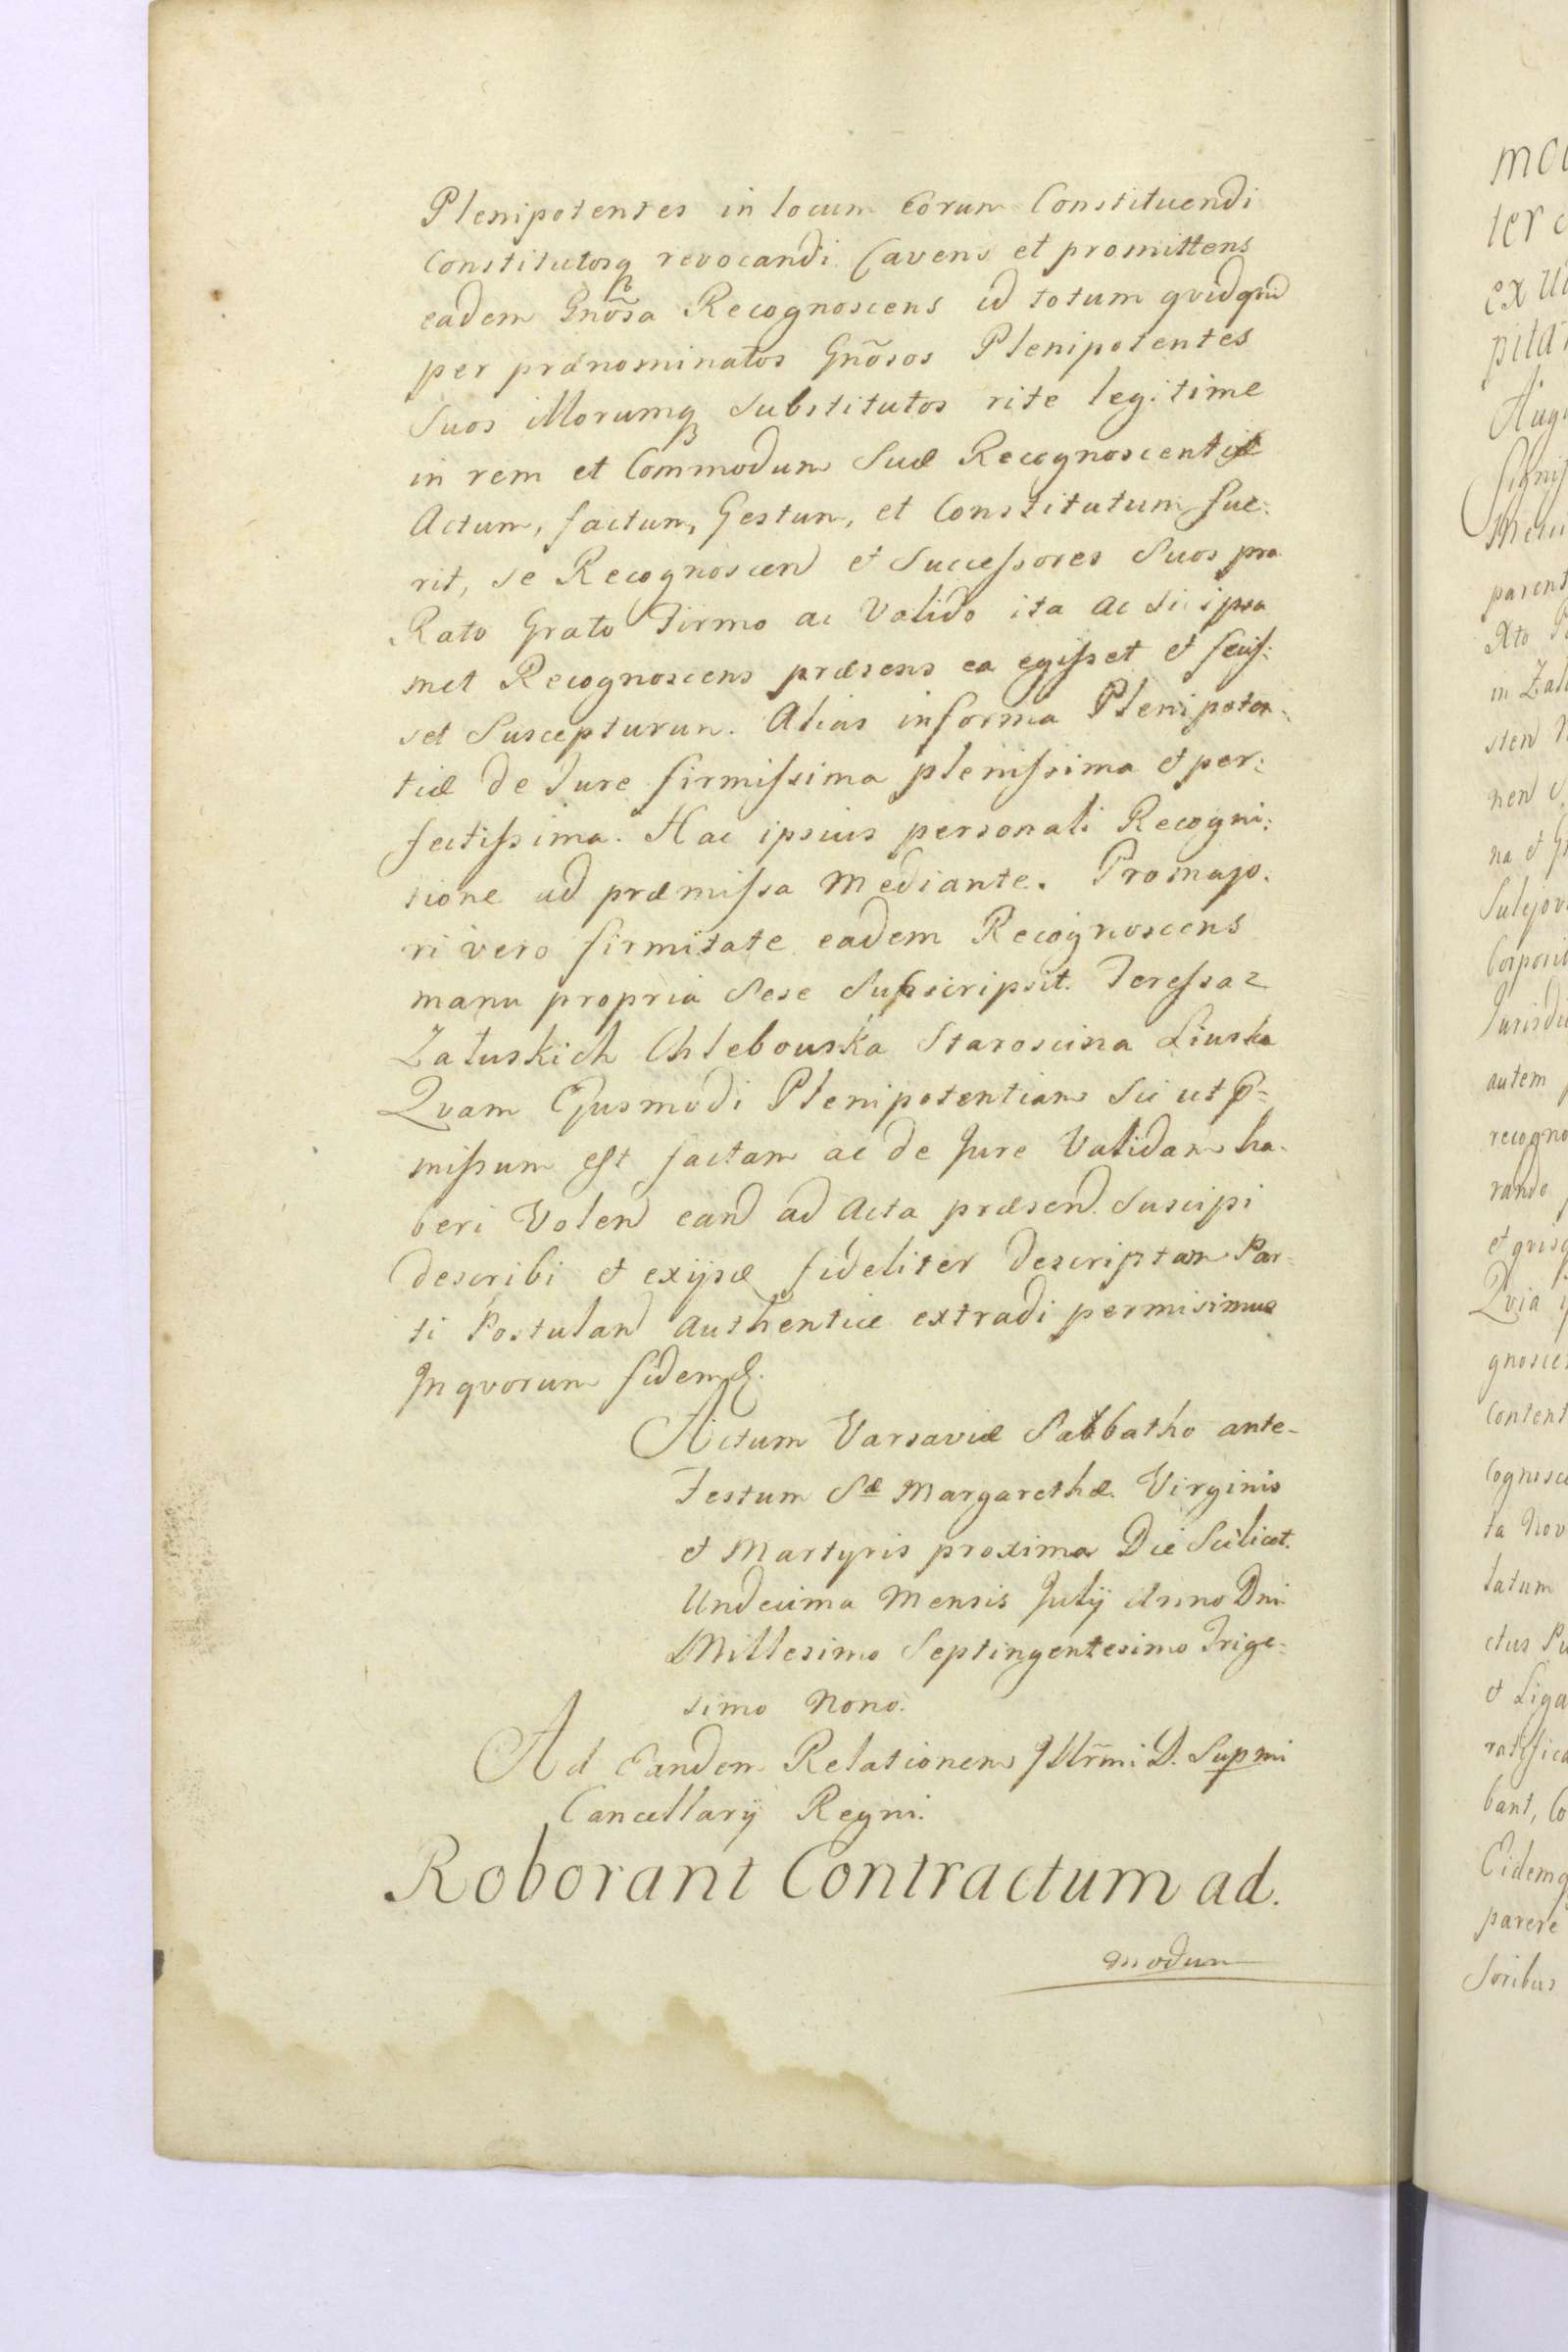 Plenipotentes in locum Eorum Constituendi
Constitutosq̃ revocandi. Cavens et promittens
eadem Gnõsa Recognoscens id totum qvidqvid
per prænominatos Gñosos Plenipotentes
Suos illorumq̃ Substitutos rite legitime
in rem et Commodum Suæ Recognoscentis
Actum, factum, Gestum, et Constitutum fue:
rit, se Recognoscen et Successores Suos pro
Rato Grato Firmo ac Valido ita ac si ipsa
met Recognoscens præsens ea egisset et fecis:
set Suscepturum. Alias informa Plenipoten:
tiæ de Jure firmissima plenissima et per:
fectissima. Hac ipsius personali Recogni:
tione ad præmissa Mediante. Promajo.
ri vero firmitate eadem Recognoscens
manu propria Sese Subscripsit. Teressa z
Załuskich Chlebowska Staroscina Liwska
Qvam Ejusmodi Plenipotentiam Sic ut p-
missum est factam ac de Jure Validam ha-
beri Volen eand ad Acta præsend. Suscipi
describi et exijsd fideliter descriptam Par-
ti Postuland Authentice extradi permisimus
Jn qvorum fidem &.
Actum Varsaviæ Sabbatho ante-
Festum Sæ Margarethæ Virginis
et Martyris proxima Die Scilicet.
Undecima Mensis Julij Anno Dni
Millesimo Septingentesimo Trige-
simo Nono.
Ad Eandem Relationem Jllr̃mi D. Supmi
Cancellarij Regni.
Roborant Contractum ad.
modum
mo
ter
ex
Aug
parent
in Zał
sten
nen
na et
autem
recogno
rando
Qvia
gnosce
Content
Cognosce
ta Nov
tatum
ctus
et Liga
ratifica
bant, Co
Eidemq
parere